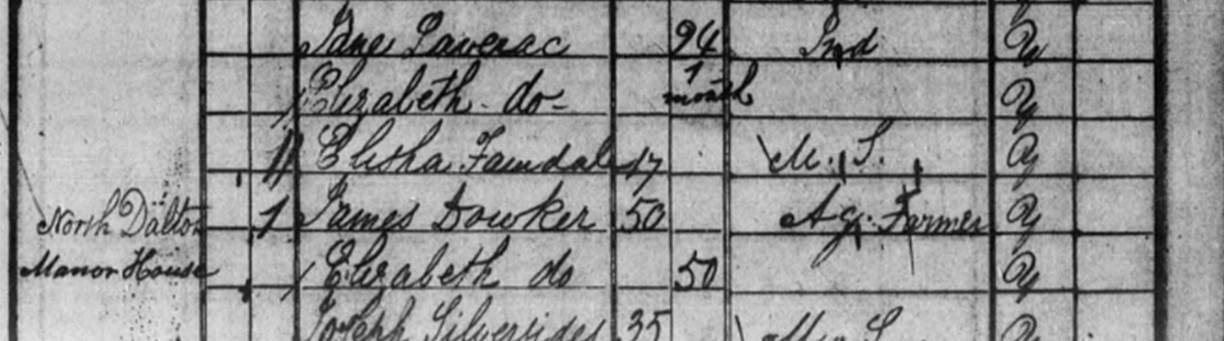 Jane Laverac 94 Ind Y
Elizabeth do 1 month Y
Elisha Farndale 17 M. S. Y
North Dalton 1 James Dowker 50 Ag. Farmer Y
Manor House Elizabeth do 50 Y
Joseph Silversides 35 S.